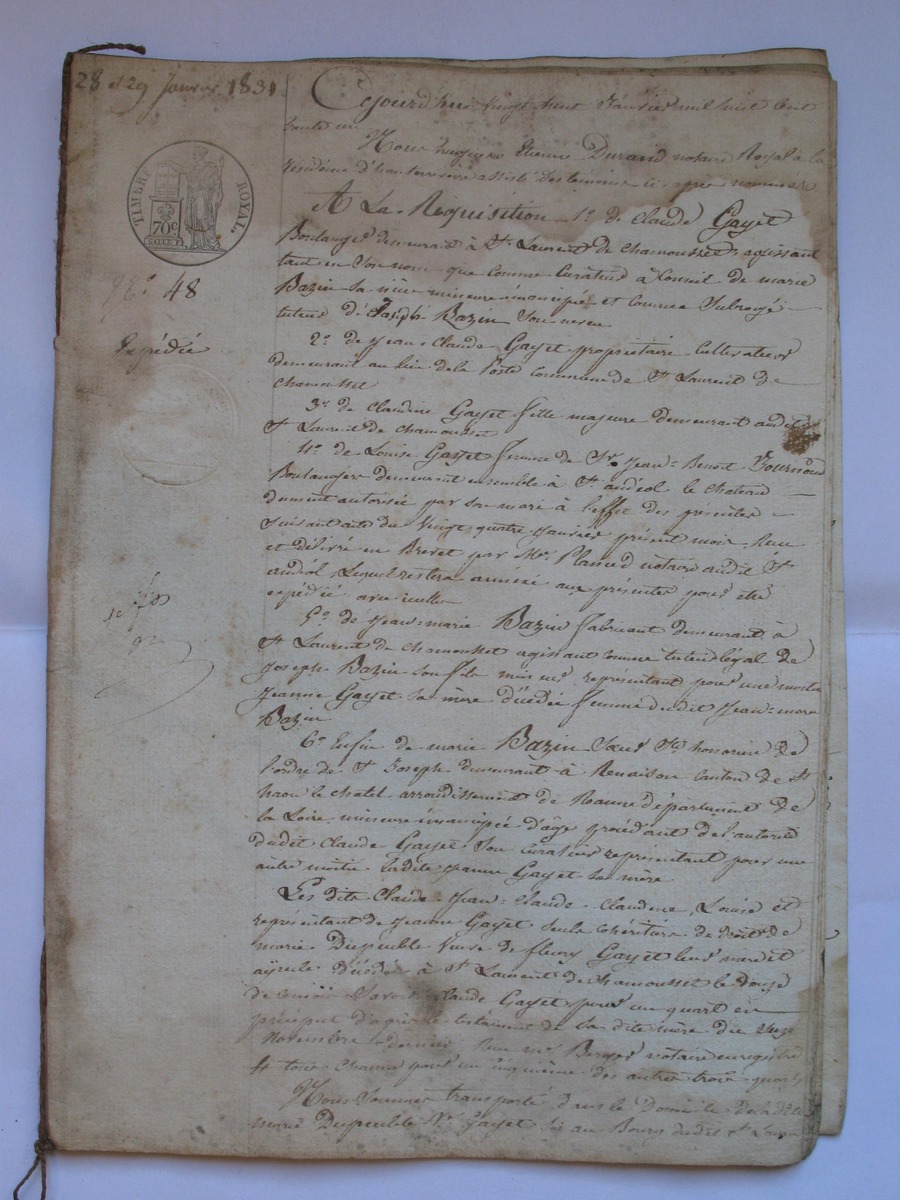 28 et 29 Janvier 1831
TIMBRE ROYAL
70c
N° 48
Expédié
Cejourd'hui vingt huit Janvier mil huit cent
trente un
Nous Etienne Durand notaire Royal à la
Résidence d' assisté des témoins ci après nommés
A La Réquisition 1° de Claude Gayet
Boulanger demeurant à St Laurent de Chamousset, agissant
tant en son nom que comme Curateur à Conseil de marie
Bazin sa niece mineure émancipée et comme Subrogé
tuteur de Joseph Bazin son neveu
2° de Jean Claude Gayet propriétaire Cultivateur
demeurant au lieu de la Poste Commune de St Laurent de
Chamousset
3° de Claudine Gayet fille majeure demeurant audit
St Laurent de Chamousset
4° de Louise Gayet femme de Sr Jean-Benoit
Boulanger demeurant ensemble à St andéol le Chateau
dument autorisée par son mari à l'effet des présentes
suivant acte du Vingt quatre Janvier présent mois Reçu
et délivré en Brevet par Me notaire audit St
andéol, Lequel restera annéxé aux présentes pour être
expédié avec icelles
5° de Jean-marie Bazin fabricant demeurant à
St Laurent de Chamousset agissant comme tuteur légal de
Joseph Bazin son fils mineur, représentant pour une moitié
Jeanne Gayet sa mère décédée femme dudit Jean-marie
Bazin
6° Enfin de marie Bazin Soeur Ste honorine de
l'ordre de St Joseph demeurant à Renaison Canton de St
haon le chatel arrondissement de Roanne département de
la Loire mineure émancipée d'âge procédant de l'autorité
dudit Claude Gayet son curateur représentant pour une
autre moitié ladite Jeanne Gayet sa mère
Les dits Claude, Jean-Claude, Claudine, Louise et
représentant de Jeanne Gayet seuls héritiers de droit de
marie Dupeuble Veuve de fleury Gayet leur mère et
ayeule décédée à St Laurent de Chamousset le douze
de ce mois Savoir Claude Gayet pour un quart en
préciput d'après le testament de sa dite mère du onze
Novembre dernier Reçu Me Berger notaire enregistré
et tous chacun pour un cinquième des autres trois quarts
Nous Sommes transporté dans le Domicile de la dite
marie Dupeuble Ve Gayet sis au Bourg dudit St Laurent